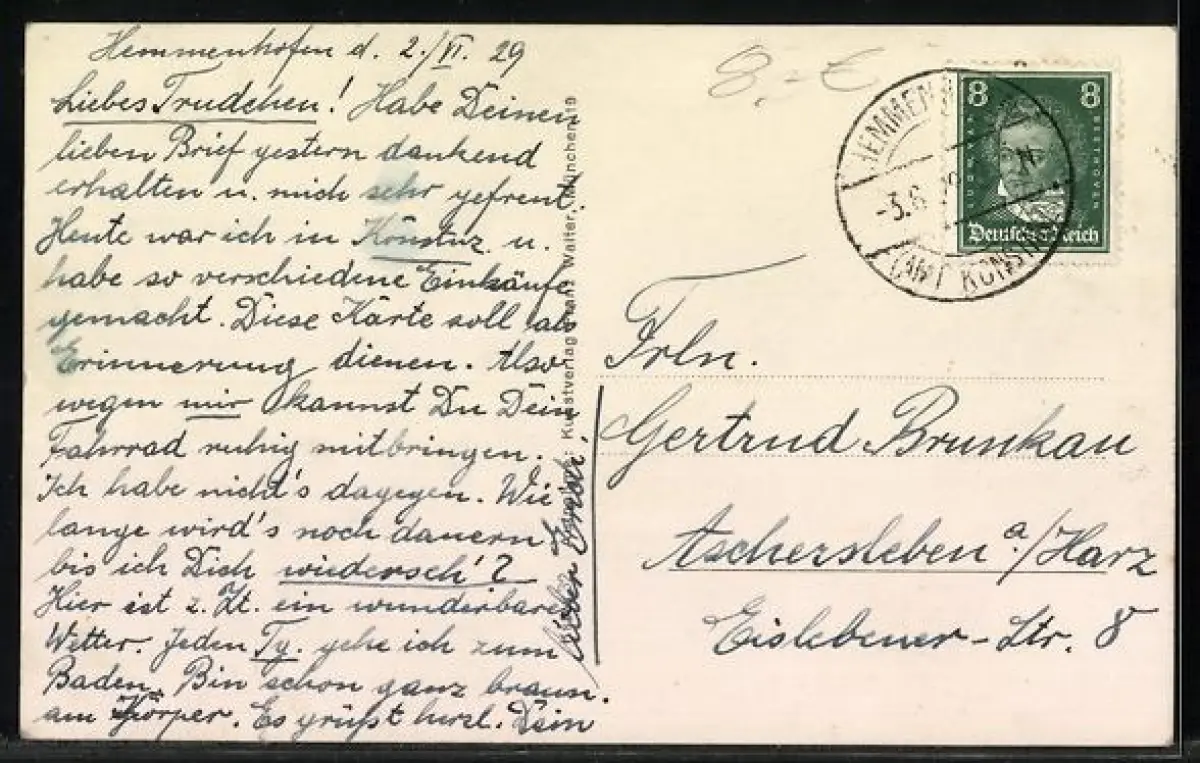 Hemmenhofen d. 2./VI. 29
Liebes Trudchen! Habe Deinen
lieben Brief gestern dankend
erhalten u. mich sehr gefreut.
Heute war ich in Konstnz u.
habe so verschiedene Einkäufe
gemacht. Diese Karte soll als
Erinnerung dienen. Also
wegen mir kannst Du Dein
Fahrrad ruhig mitbringen.
Ich habe nicht's dagegen. Wie
lange wird's noch dauern
bis ich Dich wiederseh'?
Hier ist z. Zt. ein wunderbares
Wetter. Jeden Tg. gehe ich zum
Baden. Bin schon ganz braun.
am Körper. Es grüßt herzl. Dein
Kunstverlag Walter, München 19
8,- €
HEMMEN
-3.6
(AMT KONST
8 8
LUDWIG VAN BEETHOVEN
Deutsches Reich
Frln.
Gertrud Brunkau
Aschersleben a./Harz
Eislebener-Str. 8